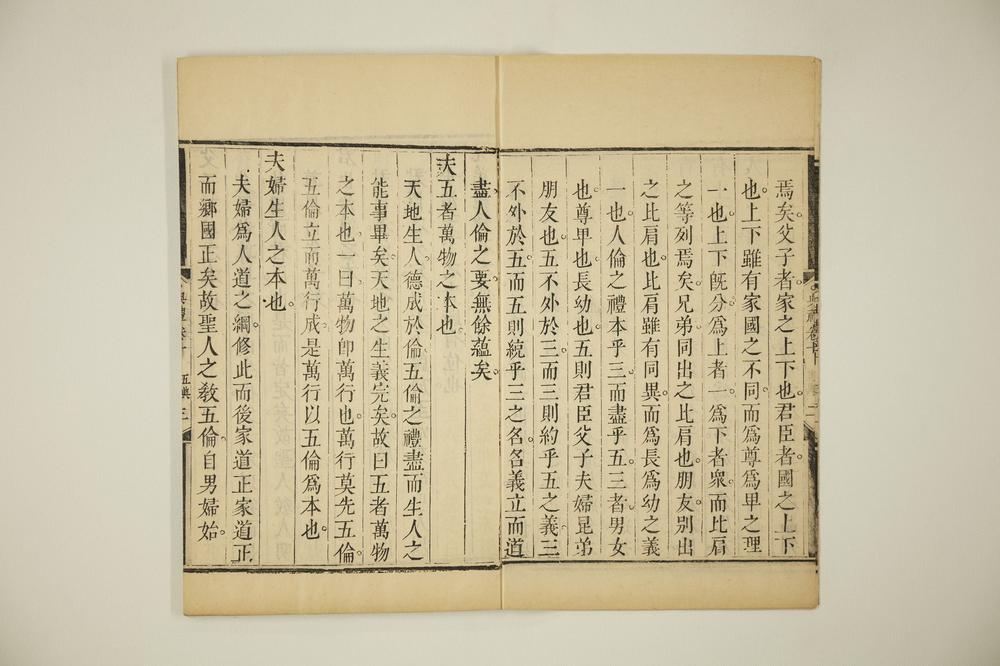 焉矣父子者家之上下也君臣者國之上下
也上下雖有家國之不同而爲尊爲卑之理
一也上下旣分爲上者一爲下者衆而比肩
之等列焉矣兄弟同出之比肩也朋友別出
之比肩也比肩雖有同異而爲長爲幼之義
一也人倫之禮本乎三而盡乎五三者男女
也尊卑也長幼也五則君臣父子夫婦昆弟
朋友也五不外於三而三則約乎五之義三
不外於五而五則統乎三之名名義立而道
盡人倫之要無餘蘊矣
夫五者萬物之本也
天地生人德成於倫五倫之禮盡而生人之
能事畢矣天地之生義完矣故曰五者萬物
之本也一曰萬物卽萬行也萬行莫先五倫
五倫立而萬行成是萬行以五倫爲本也
夫婦生人之本也
夫婦爲人道之綱修此而後家道正家道正
而鄉國正矣故聖人之敎五倫自男婦始
典禮 卷十 五典 三